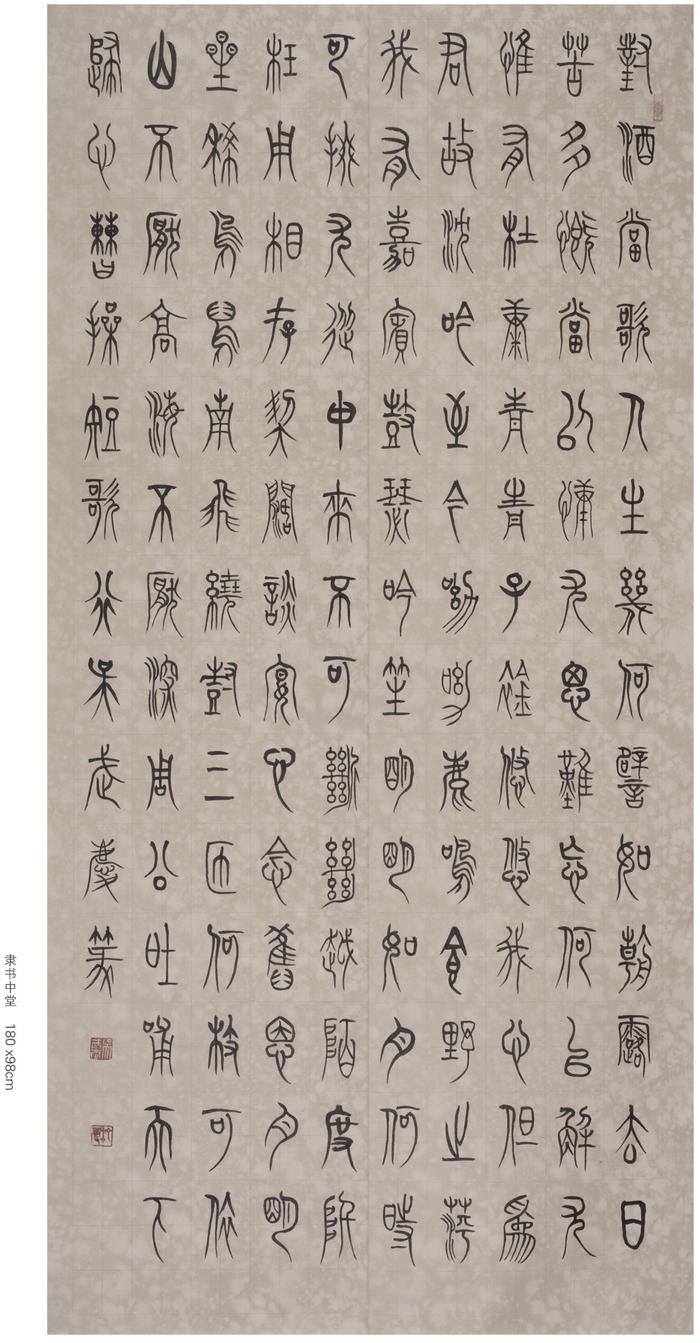 對酒當歌人生幾何譬如朝露去日
苦多慨當以慷尤思難忘何以解尤
惟有杜康青青子衿悠悠我心但為
君故沈吟至今呦呦鹿鳴食野之苹
我有嘉賓鼓瑟吹笙明明如月何時
可掇尤從中來不可斷絕越陌度阡
枉用相存契闊談宴心念舊恩月明
星稀烏鵲南飛繞樹三匝何枝可依
山不厭高海不厭深周公吐哺天下
歸心曹操短歌行吳武慶篆
隶书中堂 180 x98cm